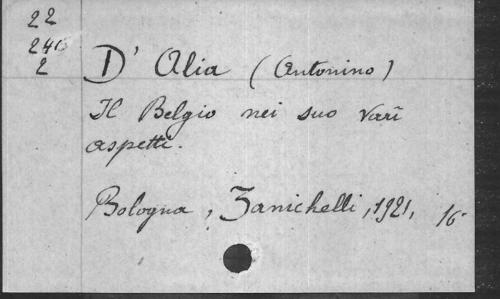 22
2415
2
D' Alia (Antonino)
Il Belgio nei suo varî
aspetti.
Bologna, Zanichelli, 1921, 16°